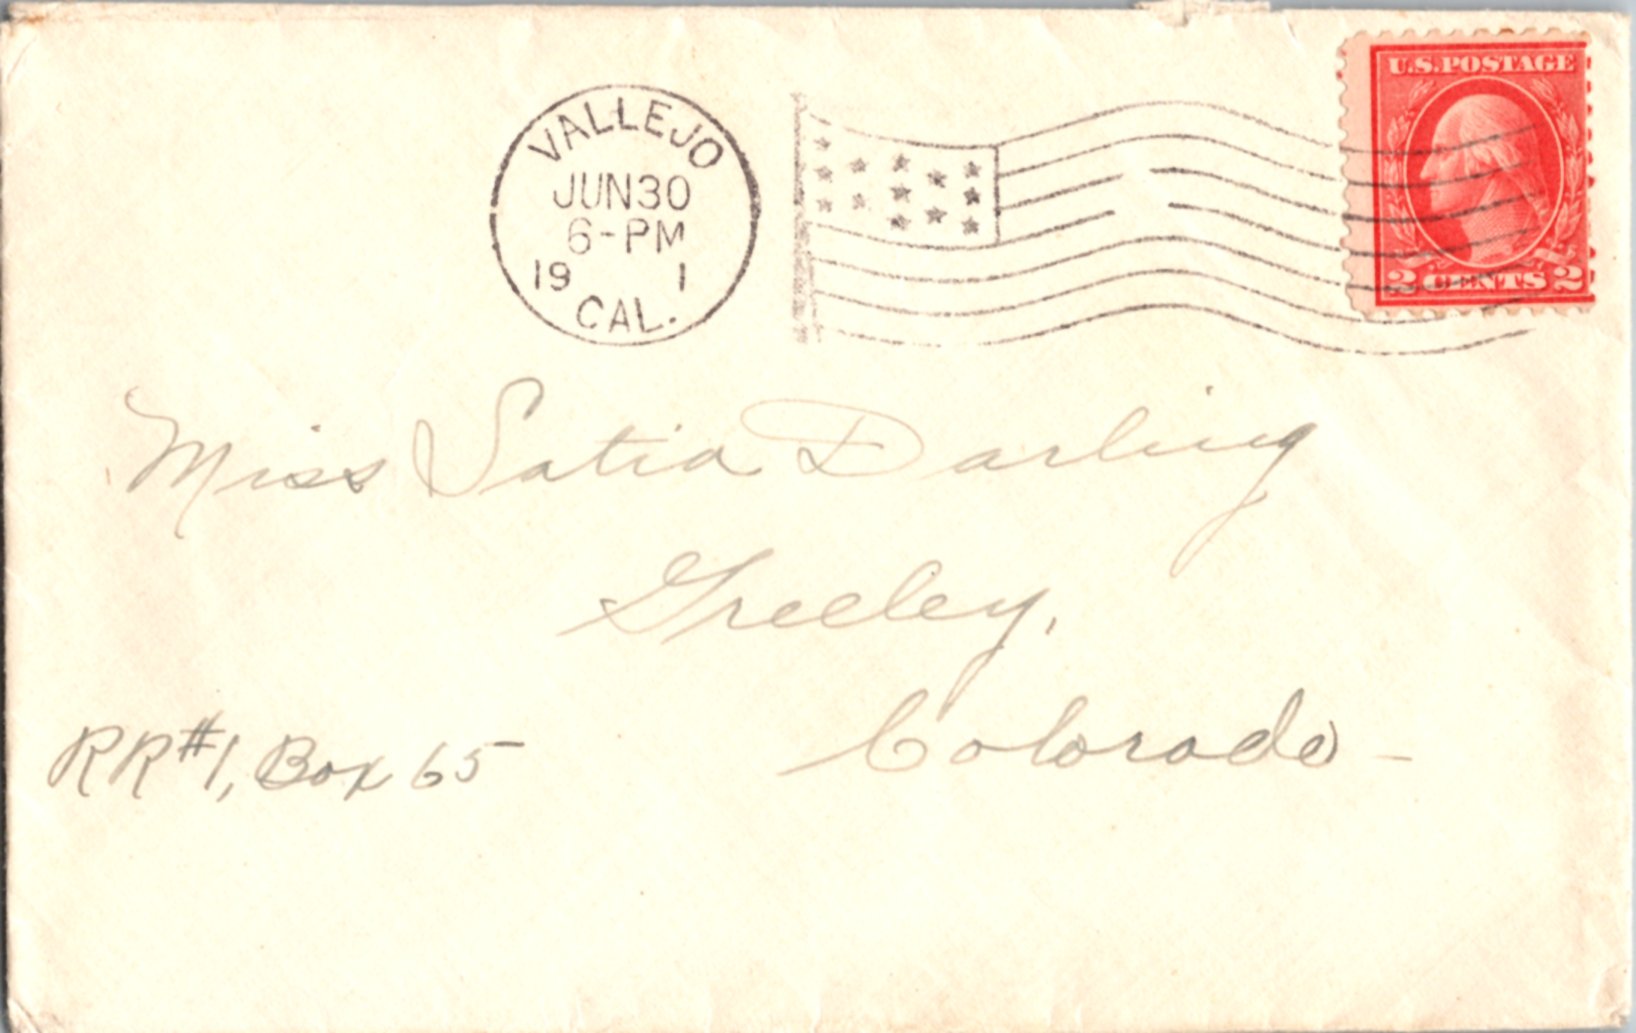 VALLEJO
JUN30
6-PM
19 1
CAL.
U.S.POSTAGE
2 CENTS 2
Miss Satia Darling
Greeley,
Colorado-
RR#1, Box 65